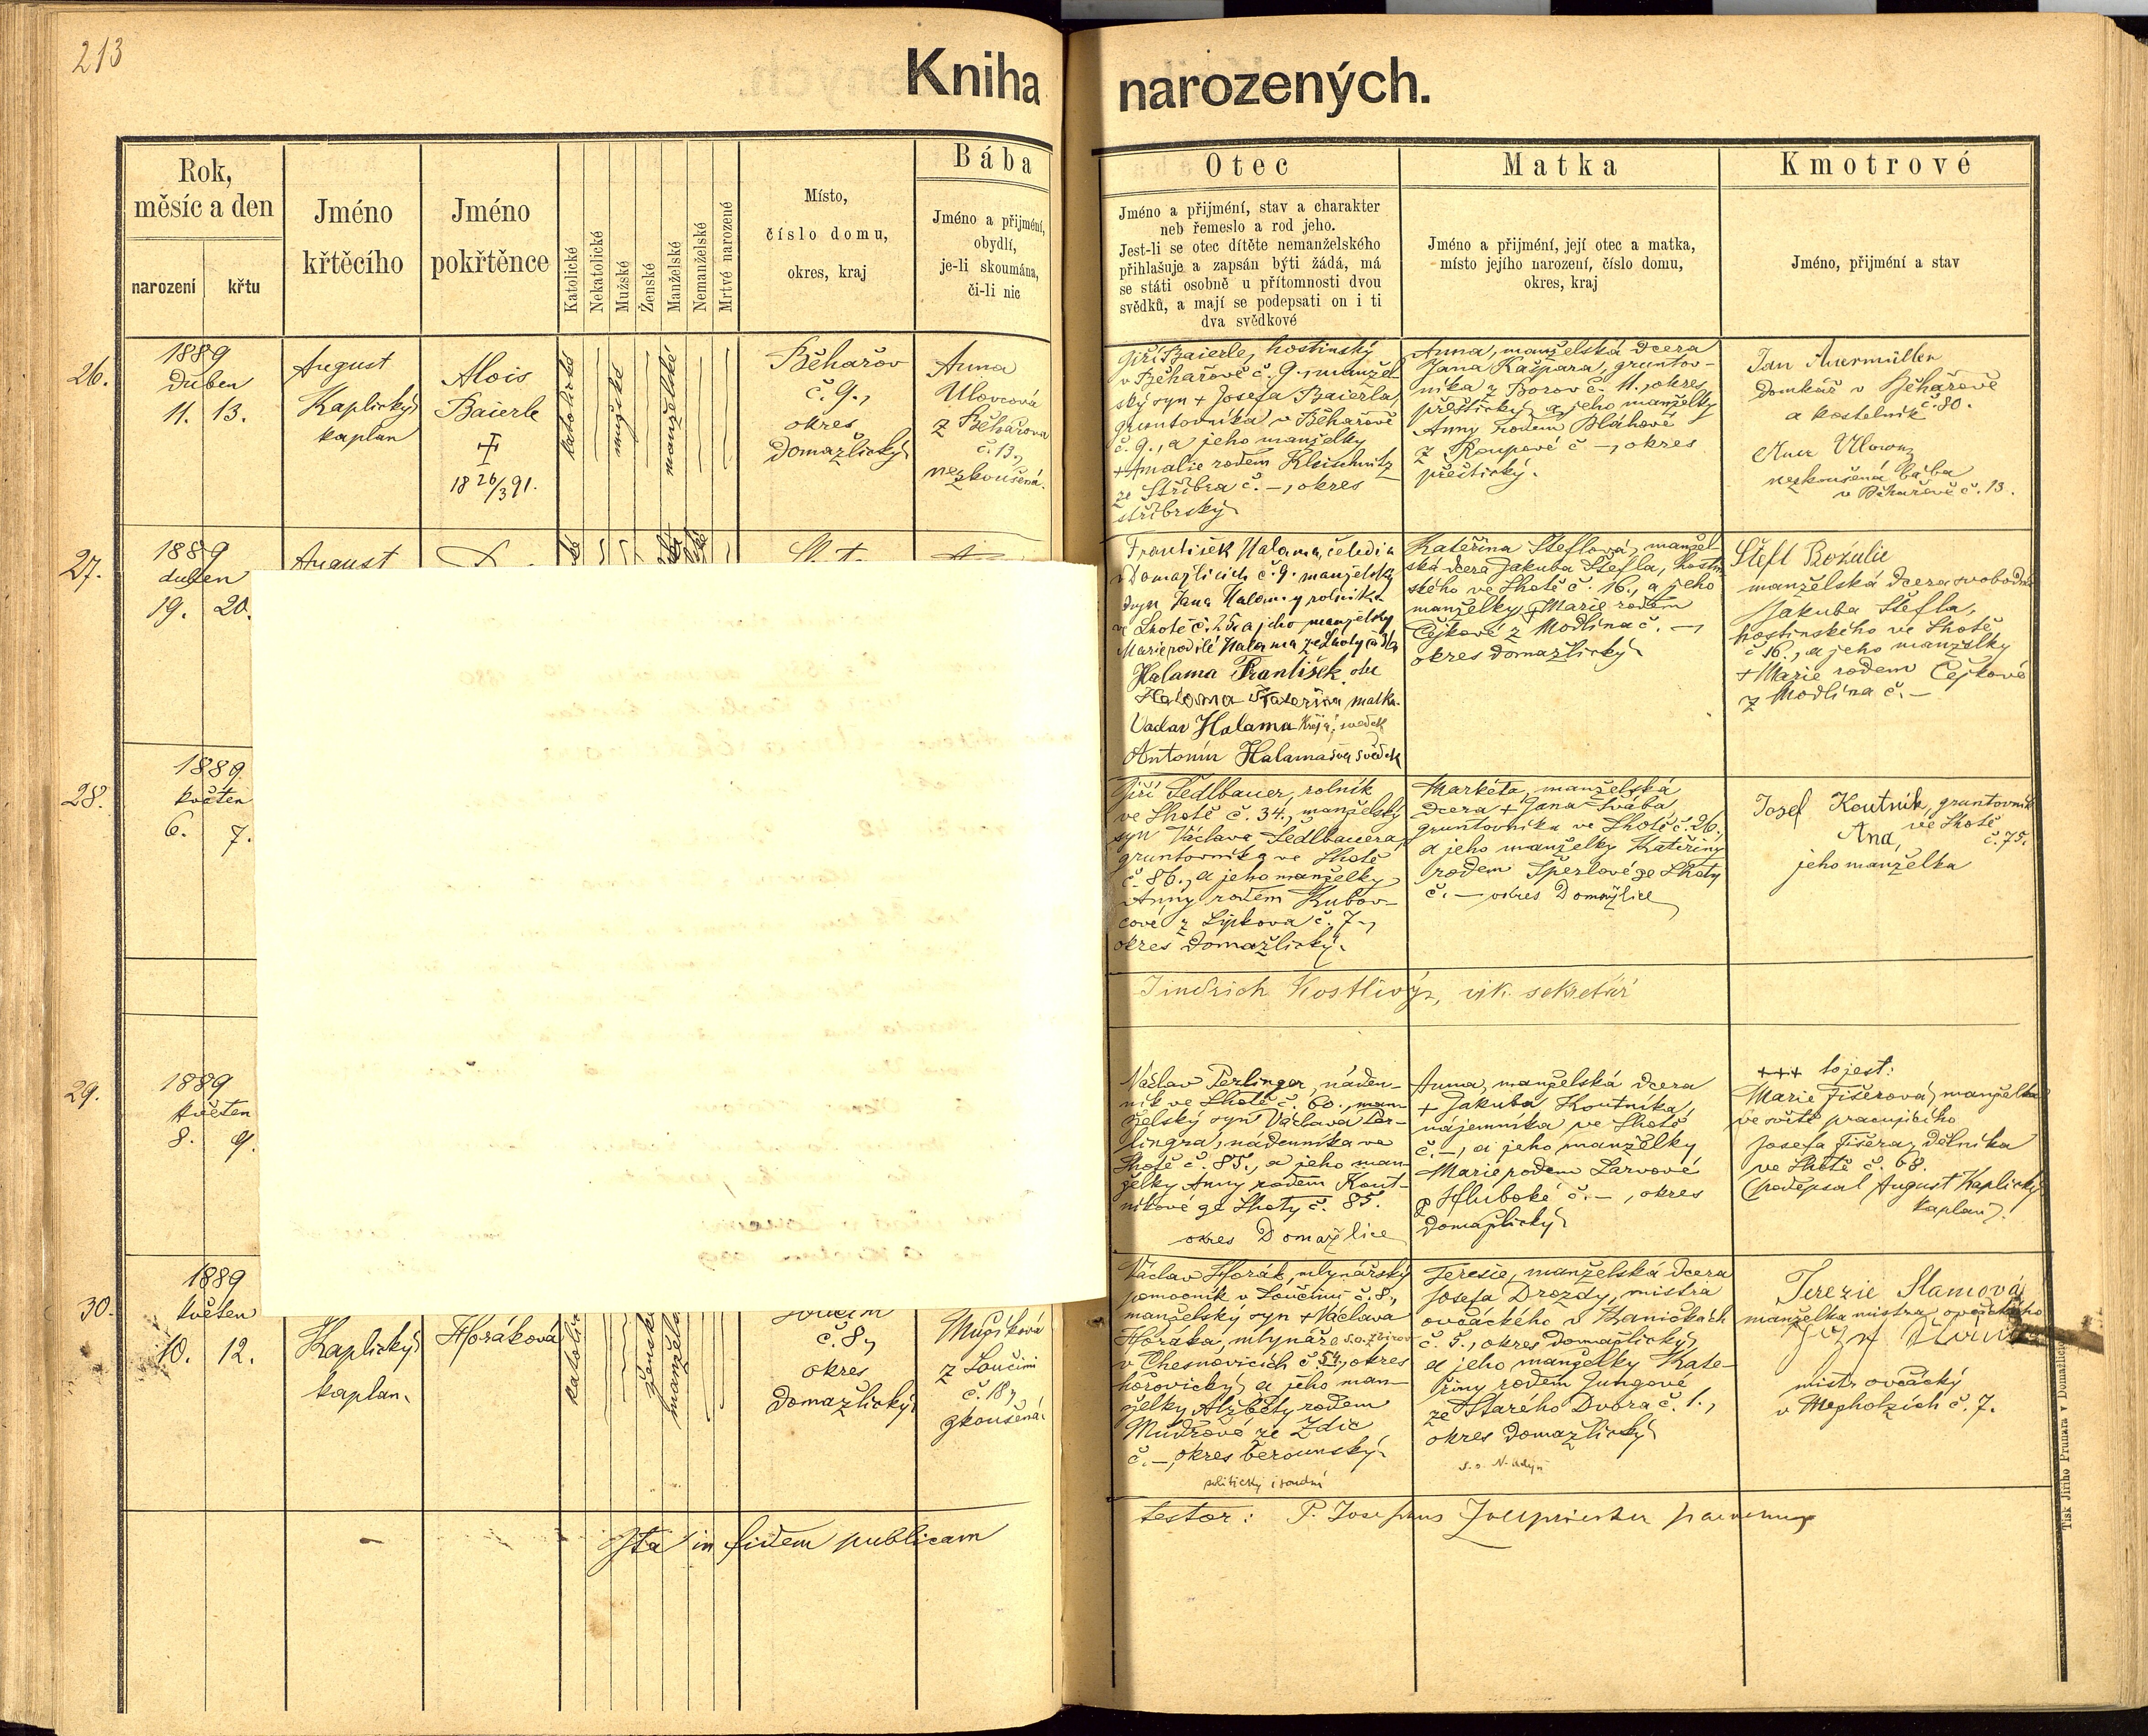 213
Kniha narozených.
Rok,
měsíc a den
narození
křtu
Jméno
křtěcího
Jméno
pokřtěnce
Katolické
Nekatolické
Mužské
Ženské
Manželské
Nemanželské
Mrtvé narozené
Místo,
číslo domu,
okres, kraj
Bába
Jméno a přijmění,
obydlí,
je-li skoumána,
či-li nic
Otec
Jméno a přijmění, stav a charakter
neb řemeslo a rod jeho.
Jest-li se otec dítěte nemanželského
přihlašuje a zapsán býti žádá, má
se státi osobně u přítomnosti dvou
svědků, a mají se podepsati on i ti
dva svědkové
Matka
Jméno a přijmění, její otec a matka,
místo jejího narození, číslo domu,
okres, kraj
Kmotrové
Jméno, přijmění a stav
26.
1889
duben
11. 13.
August
Kaplický
kaplan
Alois
Baierle
18 26/3 91.
katolické
mužské
manželské
Běhařov
č. 9.,
okres
domažlický
Anna
Ulovcová
z Běhařova
č. 13.,
nezkoušená.
Jiří Baierle, hostinský
v Běhařově č. 9. manžel-
ský syn + Josefa Baierla,
gruntovníka v Běhařově
č. 9., a jeho manželky
+ Amalie rodem Kleischnitz
ze Stříbra č. –, okres
stříbrský
Anna, manželská dcera
Jana Kašpara, gruntov-
níka z Borov č. 11., okres
přeštický, a jeho manželky
Anny rodem Bláhové
z Roupové č –, okres
přeštický.
Jan Auermüller
domkář v Běhařově
a kostelník č. 80.
nezkoušená bába
v Běhařově č. 13.
27.
1889
duben
19. 20.
August
František Halama, čeledín
v Domažlicích č. 9. manželský
syn Jana Halamy rolníka
ve Lhotě č. 25. a jeho manželky
Marie rodilé Halama ze Lhoty
Halama František otec
Halama Kateřina matka
Václav Halama Krejčí, svědek
Antonín Halama svědek
Kateřina Šteflová, manžel-
ská dcera Jakuba Štefla, hostin-
ského ve Lhotě č. 16., a jeho
manželky + Marie rodem
Čejkové z Modlína č. –,
okres domažlický
Šteft Rozálie
manželská dcera svobodná
Jakuba Štefla,
hostinského ve Lhotě
č 16., a jeho manželky
+ Marie rodem Čejkové
z Modlína č. –
28.
1889
květen
6. 7.
Jiří Sedlbauer, rolník
ve Lhotě č. 34., manželský
syn Václava Sedlbauera,
gruntovníka ve Lhotě
č. 86., a jeho manželky
Anny rodem Kubov-
cové z Lipkova č. 7.,
okres domažlický.
Markéta, manželská
dcera + Jana Švába
gruntovníka ve Lhotě č. 26.,
a jeho manželky Kateřiny
rodem Šperlové ze Lhoty
č. – okres Domažlice
Josef Koutník, gruntovník
ve Lhotě
Ana, č. 75.
jeho manželka
Jindřich Kostlivý, vik. sekretář
29.
1889
květen
8. 9.
Václav Perlinger, náden-
ník ve Lhotě č. 60., man-
želský syn Václava Per-
lingra, nádenníka ve
Lhotě č. 85., a jeho man-
želky Anny rodem Kout-
níkové ze Lhoty č. 85.
okres Domažlice
Anna, manželská dcera
+ Jakuba Koutníka,
nájemníka ve Lhotě
č. –, a jeho manželky
Marie rodem Larvové
z Hluboké č. –, okres
domažlický
+++ tojest:
Marie Fišerová, manželka
ve světě pracujícího
Josefa Fišera, dělníka
ve Lhotě č. 68.
(podepsal August Kaplický
kaplan).
30.
1889
květen
10. 12.
Kaplický
kaplan.
Horáková
ženské
Loučim
č. 8.,
okres
domažlický
Mužíková
z Loučimi
č. 18.,
zkoušená
Václav Horák, mlynářský
pomocník v Loučimi č. 8.,
manželský syn + Václava
Horáka, mlynáře s.o. Zbirov
v Chesnovicích č. 54., okres
hořovický, a jeho man-
želky Alžběty rodem
Mudrové ze Zdic
č. –, okres berounský.
politický i soudní
Terezie, manželská dcera
Josefa Drozdy, mistra
ovčáckého v Haničkách
č. 5., okres domažlický,
a jeho manželky Kate-
řiny rodem Jungové
ze Starého Dvora č. 1.,
okres domažlický
Terezie Slamová
manželka mistra ovčáckého
mistr ovčácký
v Nepholzích č. 7.
Ita in fidem publicam
testor: P. Josephus
Tisk Jiřího Prunara v Domažlicích